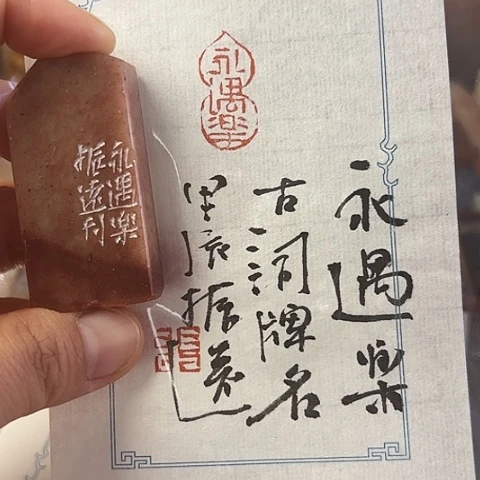 永遇樂
永遇樂
振遠刊
永遇樂
古詞牌名
甲辰振遠